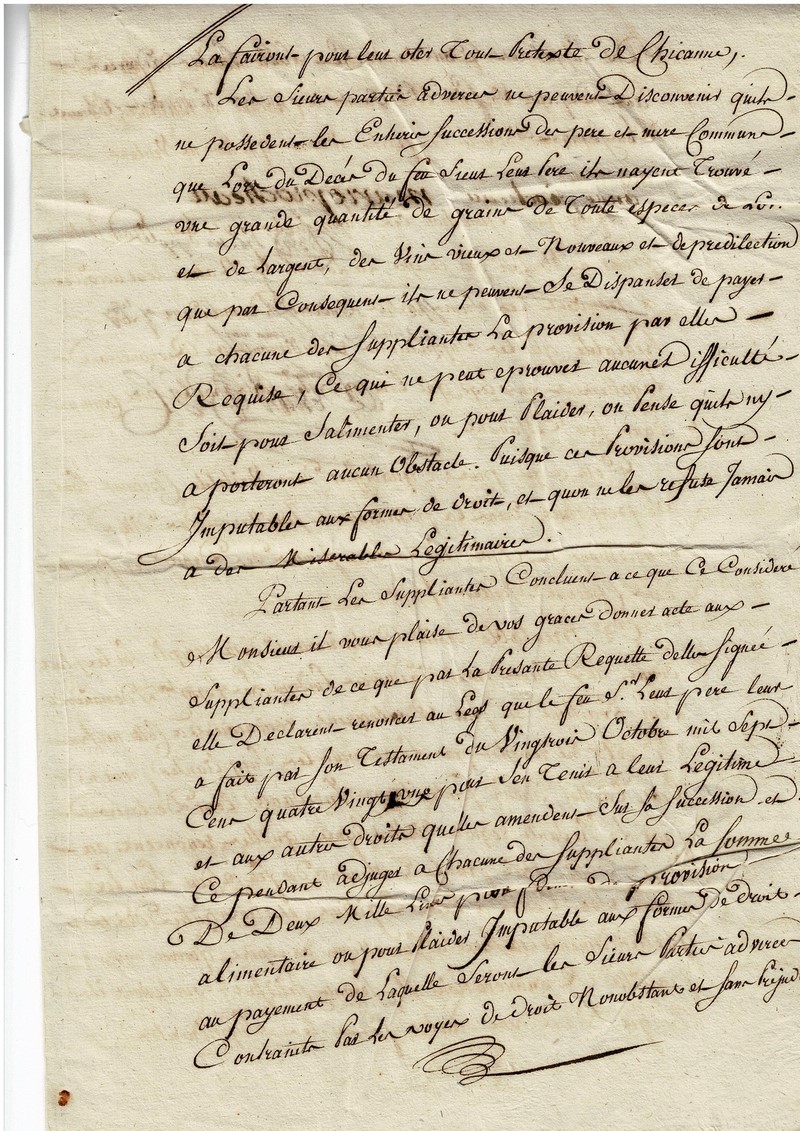 La fairont pour leur oter Tout Pretexte de Chicanne,.
Les Sieurs parties adverces ne peuvent Disconvenir quils
ne possedent les Entieres Successions des pere et mere Communs
que Lors du Decés du feu Sieur Leur Pere ils nayent Trouvé
une grande quantité de grains de Toute especes de
et de Largent, des Vins vieux et Nouveaux et de predilection
que par Consequent ils ne peuvent Se Dispanser de payer
a chacune des Suppliantes La provision par elles
Requise, Ce qui ne peut eprouver aucune Difficulté
Soit pour Salimenter, ou pour Plaider, on Pense quils ny
aporteront aucun Obstacle. Puisque ces Provisions sont
Imputables aux formes de droit, et quon ne les refuse Jamais
a des Miserables Legitimaires.
Partant Les Suppliantes Concluent a ce que Ce Consideré
Monsieur il vous plaise de vos graces donner acte aux
Suppliantes de ce que par La Presante Requette delles Signée
elle Declarent renoncer au Legs que le feu Sr. Leur pere leur
a fait par Son Testament du Vingtrois Octobre mil Sept
Cens quatre Vingt une pour Sen Tenir a leur Legitime
et aux autres droits quelles amendent Sur Sa Succession et
Ce pendant adjuger a Chacune des Suppliantes La Somme
De Deux Mille Livres provision
alimentaire ou pour Plaider Imputable aux formes de droit
au payement de Laquelle Seront les Sieurs Parties adverces
Contraints Par les voyes de droit Nonobstant et Sans Préjud